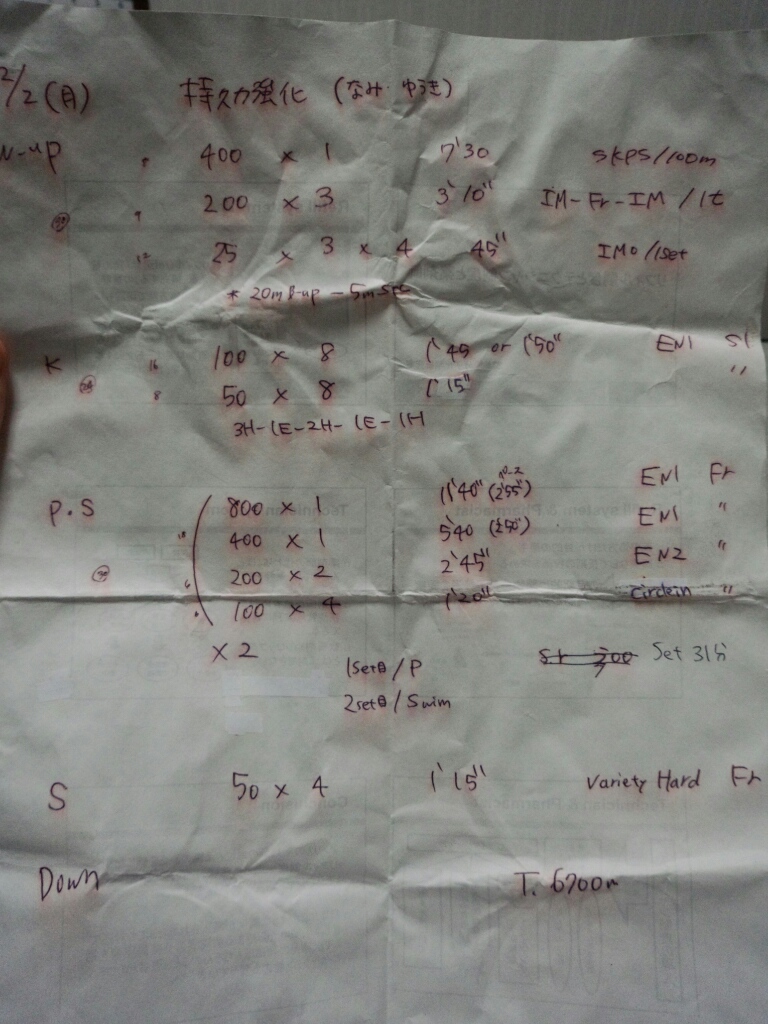 2/2 (月) 持久力強化 (なみ・ゆうき)
W-up 400 × 1 7'30 SKPS/100m
200 × 3 3'10" IM-Fr-IM / 1t
12 25 × 3 × 4 45" IMO /1set
* 20m B-up - 5m
K 16 100 × 8 1'45 or 1'50" EN1 S1
8 50 × 8 1'15" "
3H-1E-2H-1E-1H
P.S 800 × 1 11'40" (2'55") EN1 Fr
400 × 1 5'40 (2'50") EN1 "
200 × 2 2'45" EN2 "
100 × 4 1'20" "
× 2 Set 31分
1set目/P
2set目/Swim
S 50 × 4 1'15" Variety Hard Fr
Down T. 6700m